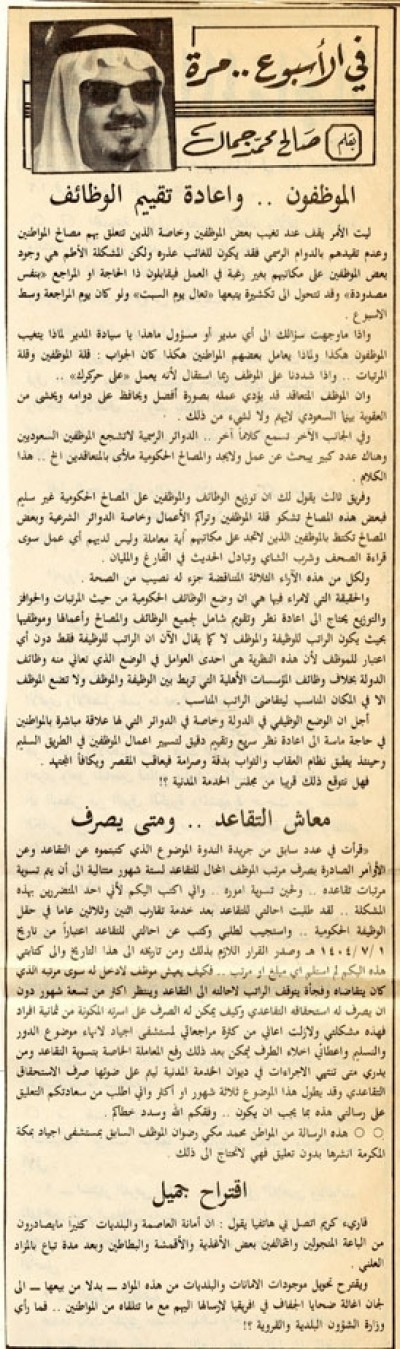 في الأسبوع .. مرة
بقلم
صالح محمد جمال
الموظفون .. واعادة تقييم الوظائف
ليت الأمر يقف عند تغيب بعض الموظفين وخاصة الذين تتعلق بهم مصالح المواطنين
وعدم تقيدهم بالدوام الرسمي فقد يكون للغائب عذره ولكن المشكلة الأطم هي وجود
بعض الموظفين على مكاتبهم بغير رغبة في العمل فيقابلون ذا الحاجة او المراجع «بنفس
مصدودة» وقد تتحول الى تكشيرة يتبعها «تعال يوم السبت» ولو كان يوم المراجعة وسط
الاسبوع .
واذا ماوجهت سؤالك الى أي مدير أو مسؤول ماهذا يا سيادة المدير لماذا يتغيب
الموظفون هكذا ولماذا يعامل بعضهم المواطنين هكذا كان الجواب : قلة الموظفين وقلة
المرتبات .. واذا شددنا على الموظف ربما استقال لأنه يعمل «على حركرك» ..
وان الموظف المتعاقد قد يؤدي عمله بصورة أفضل ويحافظ على دوامه ويخشى من
العقوبة بينما السعودي لايهم ولا لشيء من ذلك .
وفي الجانب الآخر تسمع كلاماً آخر .. الدوائر الرسمية لاتشجع الموظفين السعوديين
وهناك عدد كبير يبحث عن عمل ولايجد والمصالح الحكومية ملأى بالمتعاقدين الخ .. هذا
الكلام .
وفريق ثالث يقول لك ان توزيع الوظائف والموظفين على المصالح الحكومية غير سليم
فبعض هذه المصالح تشكو قلة الموظفين وتراكم الأعمال وخاصة الدوائر الشرعية وبعض
المصالح تكتظ بالموظفين الذين لاتجد على مكاتبهم أية معاملة وليس لديهم أي عمل سوى
قراءة الصحف وشرب الشاي وتبادل الحديث في الفارغ والمليان .
ولكل من هذه الآراء الثلاثة المتناقضة جزء له نصيب من الصحة .
والحقيقة التي لامراء فيها هي ان وضع الوظائف الحكومية من حيث المرتبات والحوافز
والتوزيع يحتاج الى اعادة نظر وتقويم شامل لجميع الوظائف والمصالح وأعمالها وموظفيها
بحيث يكون الراتب للوظيفة والموظف لا كما يقال الآن ان الراتب للوظيفة فقط دون أي
اعتبار للموظف لأن هذه النظرية هى احدى العوامل في الوضع الذي تعاني منه وظائف
الدولة بخلاف وظائف المؤسسات الأهلية التي تربط بين الوظيفة والموظف ولا تضع الموظف
الا في المكان المناسب ليتقاضى الراتب المناسب .
أجل ان الوضع الوظيفي في الدولة وخاصة في الدوائر التي لها علاقة مباشرة بالمواطنين
في حاجة ماسة الى اعادة نظر سريع وتقييم دقيق لتسيير اعمال الموظفين في الطريق السليم
وحينئذ يطبق نظام العقاب والثواب بدقة وصرامة فيعاقب المقصر ويكافأ المجتهد .
فهل نتوقع ذلك قريبا من مجلس الخدمة المدنية ؟!
معاش التقاعد .. ومتى يصرف
«قرأت في عدد سابق من جريدة الندوة الموضوع الذي كتبتموه عن التقاعد وعن
الأوامر الصادرة بصرف مرتب الموظف المحال للتقاعد لستة شهور متتالية الى أن يتم تسوية
مرتبات تقاعده .. ولحين تسوية اموره .. واني اكتب اليكم لأني احد المتضررين بهذه
المشكلة .. لقد طلبت احالتي للتقاعد بعد خدمة تقارب اثنين وثلاثين عاما في حقل
الوظيفة الحكومية .. واستجيب لطلبي وكتب عن احالتي للتقاعد اعتباراً من تاريخ
١٤٠٤/٧/١ هـ وصدر القرار اللازم بذلك ومن تاريخه الى هذا التاريخ والى كتابتي
هذه اليكم لم استلم اي مبلغ او مرتب .. فكيف يعيش موظف لادخل له سوى مرتبه الذي
كان يتقاضاه وفجأة يتوقف الراتب لاحالته الى التقاعد وينتظر اكثر من تسعة شهور دون
ان يصرف له استحقاقه التقاعدي وكيف يمكن له الصرف على اسرته المكونة من ثمانية افراد
فهذه مشكلتي ولازلت اعاني من كثرة مراجعاتي لمستشفى اجياد لانهاء موضوع الدور
والتسليم واعطائي اخلاء الطرف ليمكن بعد ذلك رفع المعاملة الخاصة بتسوية التقاعد ومن
يدري متى تنتهي الاجراءات في ديوان الخدمة المدنية ليتم على ضوئها صرف الاستحقاق
التقاعدي وقد يطول هذا الموضوع ثلاثة شهور او أكثر واني اطلب من سعادتكم التعليق
على رسالتي هذه بما يجب ان يكون .. وفقكم الله وسدد خطاكم .
○ ○ هذه الرسالة من المواطن محمد مكي رضوان الموظف السابق بمستشفى اجياد بمكة
المكرمة انشرها بدون تعليق فهي لاتحتاج الى ذلك .
اقتراح جميل
قاريء كريم اتصل بي هاتفيا يقول : ان أمانة العاصمة والبلديات كثيرا مايصادرون
من الباعة المتجولين والمخالفين بعض الأغذية والأقمشة والبطاطين وبعد مدة تباع بالمزاد
العلني .
ويقترح تحويل موجودات الامانات والبلديات من هذه المواد ــ بدلا من بيعها ــ الى
لجان اغاثة ضحايا الجفاف في افريقيا لارسالها اليهم مع ما تتلقاه من المواطنين .. فما رأي
وزارة الشؤون البلدية والقروية ؟!